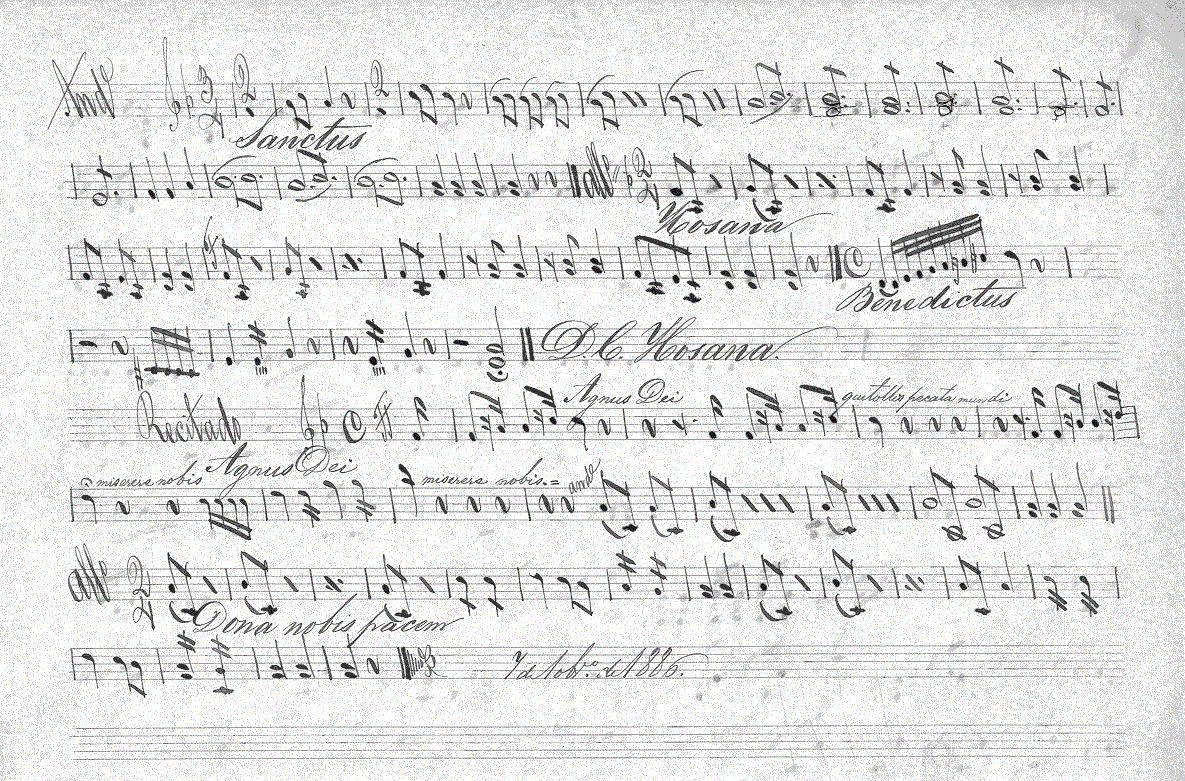 And.e
Sanctus
all.o
Hosana
Benedictus
D. C. Hosana.
Recitado
Agnus Dei
quitollis pecata mundi
miserere nobis
Agnus Dei
miserere nobis.=
and.e
all.o
Dona nobis pacem
7 de 1886.